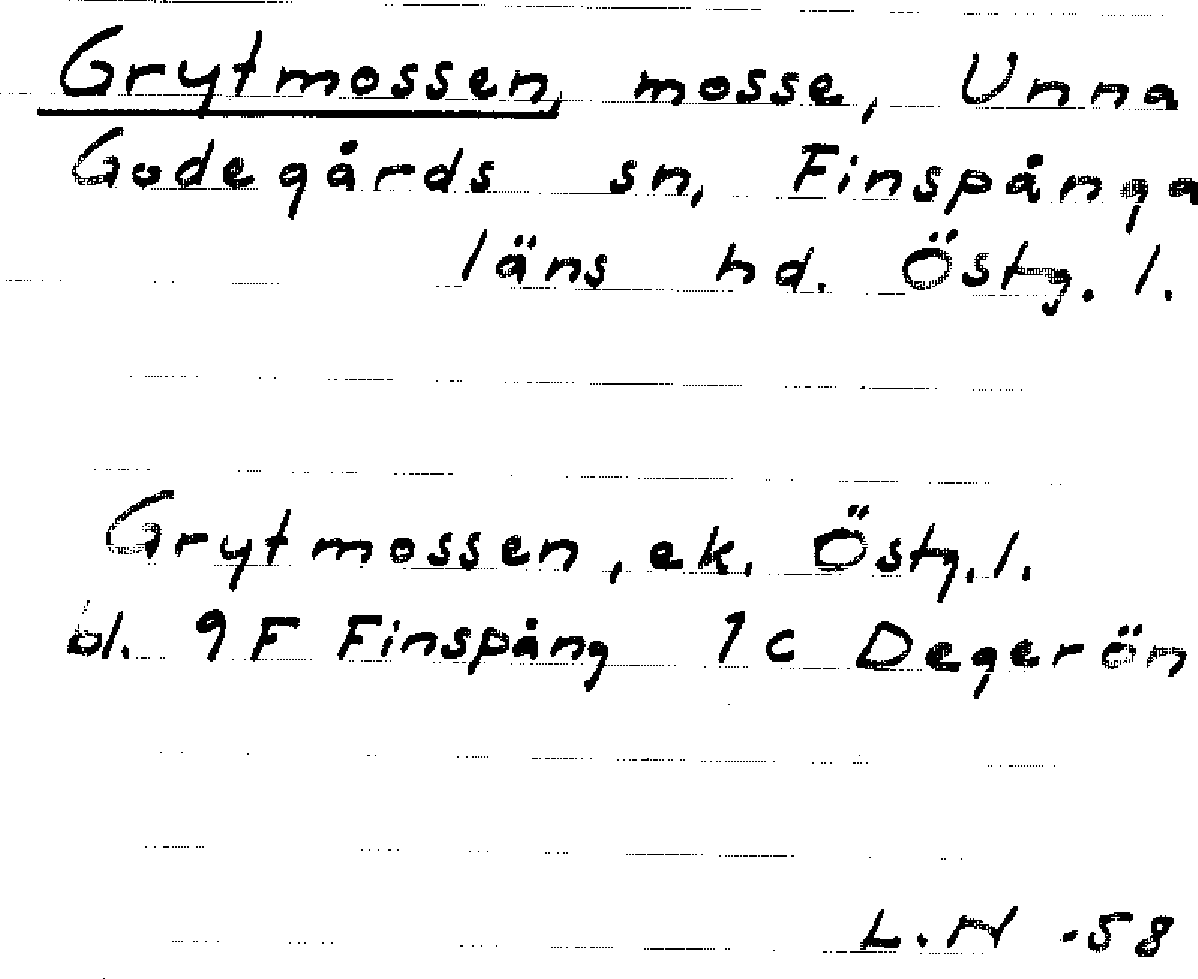 Grytmossen, mosse, Unna
Godegårds sn, Finspånga
läns hd. Östg. l.
Grytmossen, ek. Östg. l.
bl. 9F Finspång 1c Degerön
L.N -58